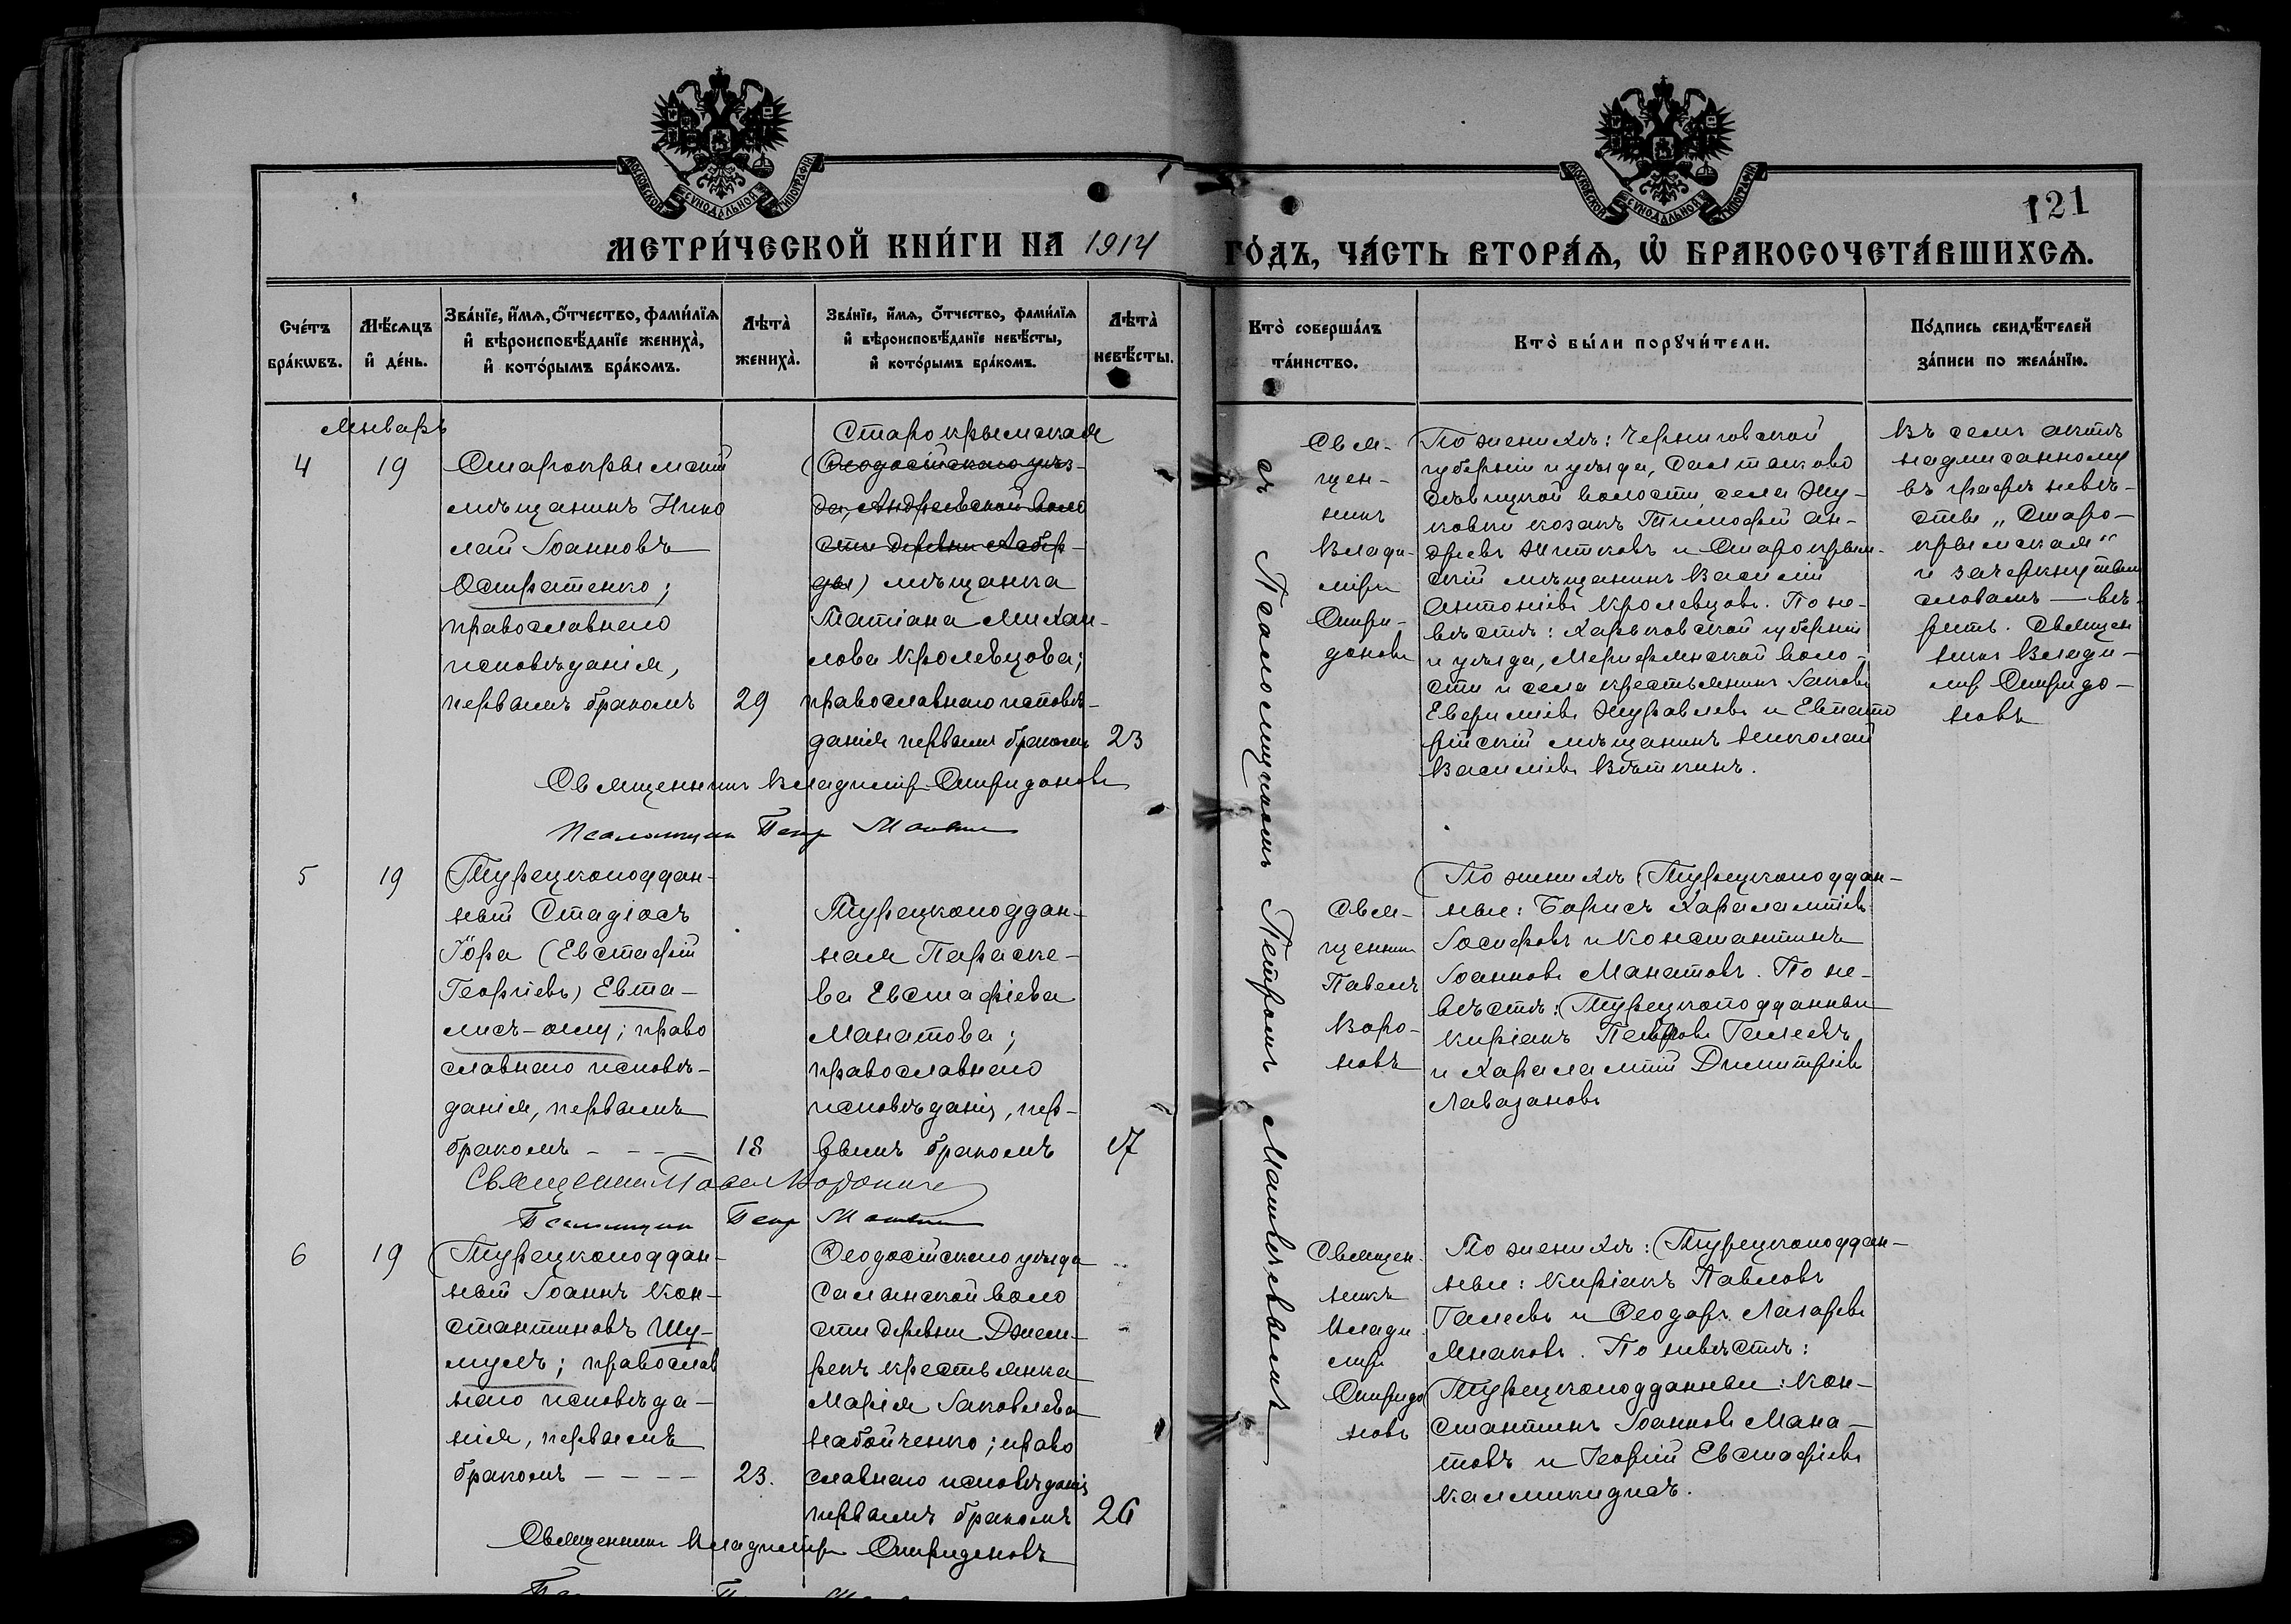 МОСКОВСКОЙ СѴНОДАЛЬНОЙ ТИПОГРАФІИ
МЕТРИ́ЧЕСКОЙ КНИ́ГИ НА 1914
Сче́тъ бра́кѡвъ.
Мѣ́сяцъ и҆ де́нь.
Зва́нїе, и҆́мѧ, ѻ҆́тчество, фами́лїѧ
и҆ вѣроисповѣ́данїе жениха̀,
и҆ кото́рымъ бра́комъ.
Лѣта̀ жениха̀.
Зва́нїе, и҆́мѧ, ѻ҆́тчество, фами́лїѧ
и҆ вѣроисповѣ́данїе невѣ́сты,
и҆ кото́рымъ бра́комъ.
Лѣта̀ невѣ́сты.
Январь
4
19
Старокрымскій
мѣщанинъ Нико
лай Іоанновъ
Остратенко;
православнаго
исповѣданія,
первымъ бракомъ
29
Старокрымская
(Ѳеодосійскаго уѣз-
да, Андреевской воло
сти деревни
) мѣщанка
Татіана Михаи-
лова Кролевцова;
православнаго исповѣ-
данія первымъ бракомъ
23
Священникъ Владиміръ Спиридоновъ
Псаломщик Петр
5
19
Турецкоподдан-
ный Стадіосъ
Іора (Евстафій
Георгіевъ) Евта-
лисъ-оглу; право
славнаго исповѣ-
данія, первымъ
бракомъ - - - -
18
Турецкоподдан-
ная Параске-
ва Евстафіева
Манатова;
православнаго
исповѣданія, пер-
вымъ бракомъ
17
Священник Павел Воронов
Псаломщик Петр
6
19
Турецкоподдан-
ный Іоаннъ Кон-
стантиновъ Шу-
мулъ; православ
наго исповѣда-
нія, первымъ
бракомъ - - - -
23.
Ѳеодосійскаго уѣзда
Саланской воло
сти деревни Джем-
рекъ крестьянка
Марія Іаковлева
Набойченко; право
славнаго исповѣданія
первымъ бракомъ
26
Священникъ Владиміръ Спиридоновъ
МОСКОВСКОЙ СѴНОДАЛЬНОЙ ТИПОГРАФІИ
121
ГО́ДЪ, ЧА́СТЬ ВТОРА́Ѧ, Ѡ҆ БРАКОСОЧЕТА́ВШИХСѦ.
Кто̀ соверша́лъ та́инство.
Кто̀ бы́ли порꙋчи́тели.
По́дпись свидѣ́телей
за́писи по жела́нїю.
Свя-
щен-
никъ
Влади-
міръ
Спири-
доновъ
По женихѣ: Черниговской
губерніи и уѣзда, Салтыково
дѣвицкой волости села Жу-
ковки козакъ Тимофей Ан-
дреевъ Житковъ и Старокрым-
скій мѣщанинъ Василій
Антоніевъ Кролевцовъ. По не-
вѣстѣ: Харьковской губерніи
и уѣзда, Мерефянской воло-
сти и села крестьянинъ Іаковъ
Евфиміевъ Журавлевъ и Евпато
рійскій мѣщанинъ Николай
Василіевъ Вѣткинъ.
Въ семъ актѣ
надписанному
въ графѣ невѣ-
стѣ „Старо-
крымская“
и зачеркнутымъ
словамъ — вѣ-
рить. Священ
никъ Влади-
мір Спиридо-
новъ
Свя-
щенник
Павелъ
Воро-
новъ
По женихѣ (Турецкоподдан-
ные: Борисъ Харалампіевъ
Іосифовъ и Константинъ
Іоанновъ Манатовъ. По не-
вѣстѣ: Турецкоподданные
Киріакъ Павловъ Галеевъ
и Харалампій Димитріевъ
Лавазановъ
Священ-
никъ
Влади
міръ
Спиридо
новъ
По женихѣ: (Турецкоподдан-
ные: Киріакъ Павловъ
Галеевъ и Ѳеодоръ Лазаревъ
Янаковъ. По невѣстѣ:
Турецкоподданные: Кон-
стантинъ Іоанновъ Мана-
товъ и Георгій Евстафіевъ
Калликидисъ.
съ Псаломщикомъ Петромъ Матвѣевымъ